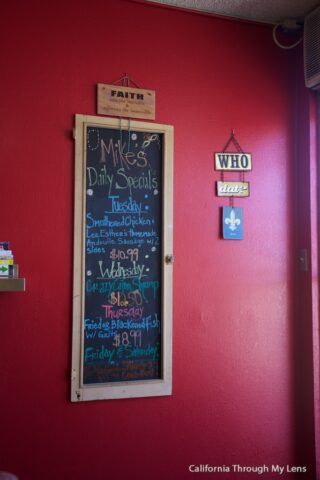 FAITH
Mike's
Daily Specials
Tuesday
Smothered Chicken +
Lee Esther's Homemade
Andouille Sausage w/ 2
sides
$10.99
Wednesday
Crazy Cajun Shrimp
$12.50
Thursday
Fried or Blackened Fish
w/ Grits
$8.99
Friday & Saturday
WHO
dat
California Through My Lens